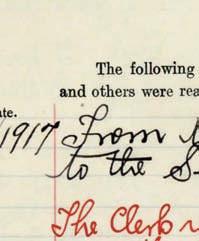 The following
and others were rea
ate.
/1917 From
to the S
The Clerk